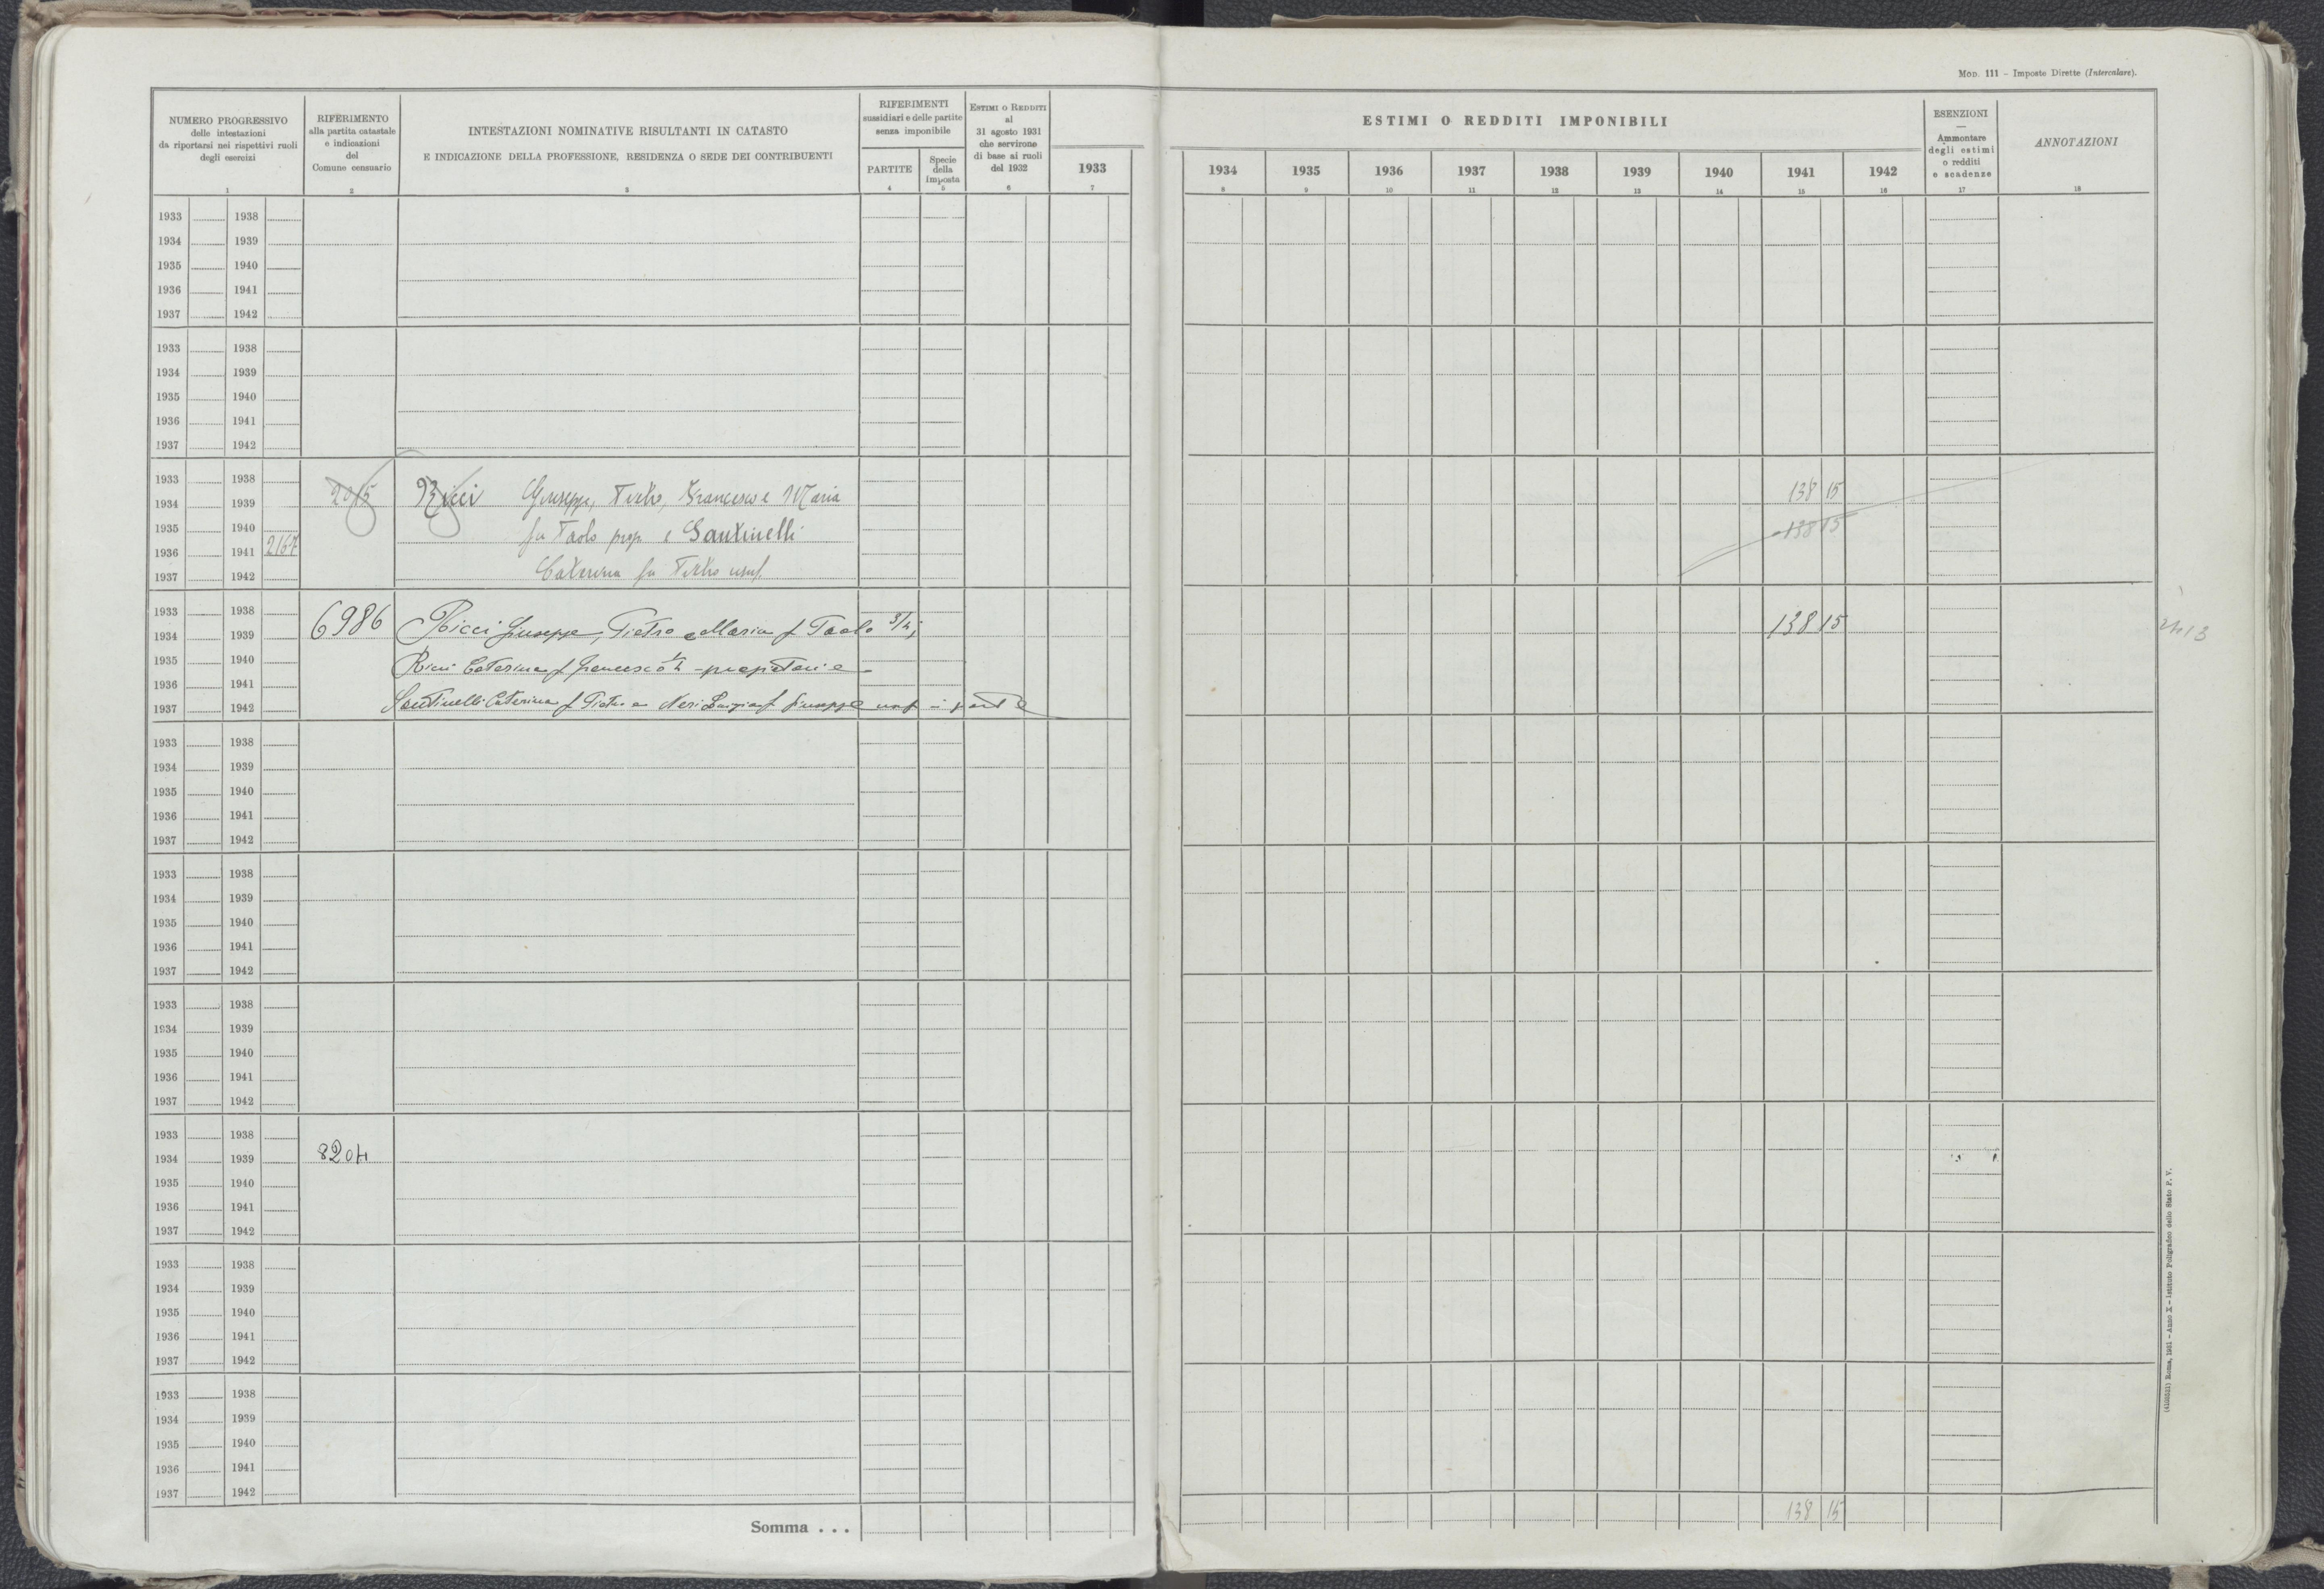 Mod. 111 - Imposte Dirette (Intercalare).
NUMERO PROGRESSIVO
delle intestazioni
da riportarsi nei rispettivi ruoli
degli esercizi
1
RIFERIMENTO
alla partita catastale
e indicazioni
del
Comune censuario
2
INTESTAZIONI NOMINATIVE RISULTANTI IN CATASTO
E INDICAZIONE DELLA PROFESSIONE, RESIDENZA O SEDE DEI CONTRIBUENTI
3
RIFERIMENTI
sussidiari e delle partite
senza imponibile
PARTITE
4
Specie
della
imposta
5
Estimi o Redditi
al
31 agosto 1931
che servirono
di base ai ruoli
del 1932
6
1933
7
ESTIMI O REDDITI IMPONIBILI
1934 1935 1936 1937 1938 1939 1940 1941 1942
8 9 10 11 12 13 14 15 16
ESENZIONI
—
Ammontare
degli estimi
o redditi
e scadenze
17
ANNOTAZIONI
18
1933 1938
1934 1939
1935 1940
1936 1941
1937 1942
1933 1938
1934 1939
1935 1940
1936 1941
1937 1942
1933 1938
1934 1939 2015 Ricci Giuseppe, Pietro, Francesco e Maria 138 15
1935 1940 fu Paolo prop. e Santinelli 138 15
1936 1941 2167
1937 1942 Caterina fu Pietro usuf.
1933 1938
1934 1939 6986 Ricci Giuseppe, Pietro e Maria f Paolo 3/4; 138 15
1935 1940 Ricci Caterina f Francesco 1/4 - proprietari e
1936 1941
1937 1942 Santinelli Caterina f Pietro e Neri Luigia f Giuseppe usuf in parte
1933 1938
1934 1939
1935 1940
1936 1941
1937 1942
1933 1938
1934 1939
1935 1940
1936 1941
1937 1942
1933 1938
1934 1939
1935 1940
1936 1941
1937 1942
1933 1938
1934 1939 8204
1935 1940
1936 1941
1937 1942
1933 1938
1934 1939
1935 1940
1936 1941
1937 1942
1933 1938
1934 1939
1935 1940
1936 1941
1937 1942
Somma . . . 138 15
(4100521) Roma, 1931 - Anno X - Istituto Poligrafico dello Stato P. V.